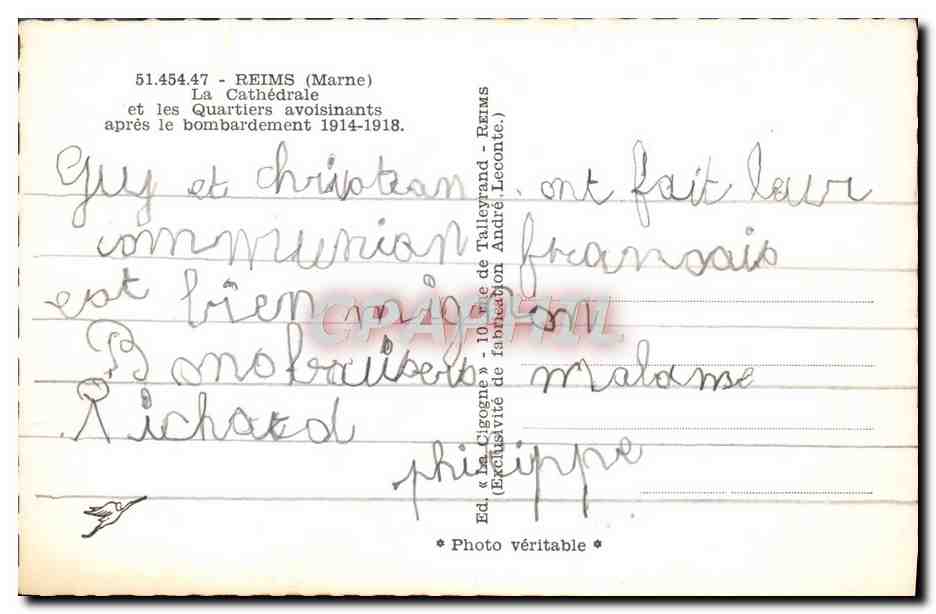 51.454.47 - REIMS (Marne)
La Cathédrale
et les Quartiers avoisinants
après le bombardement 1914-1918.
Guy et christian ont fait leur
communion français
est bien mignon
Bons baisers madame
Richard
philippe
Ed. « La Cigogne » - 10, rue de Talleyrand - REIMS
(Exclusivité de fabrication André Leconte.)
* Photo véritable *
CPAPHIL